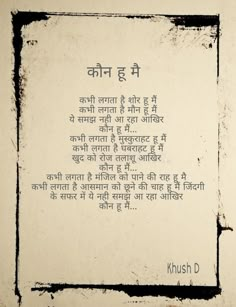 कौन हू मै
कभी लगता है शोर हू मैं
कभी लगता है मौन हू मैं
ये समझ नही आ रहा आखिर
कौन हू मैं...
कभी लगता है मुस्कुराहट हू मैं
कभी लगता है घबराहट हू मैं
खुद को रोज तलाशू आखिर
कौन हू मैं...
कभी लगता है मंजिल को पाने की राह हू मै
कभी लगता है आसमान को छूने की चाह हू मैं जिंदगी
के सफर में ये नही समझ आ रहा आखिर
कौन हू मैं...
Khush D